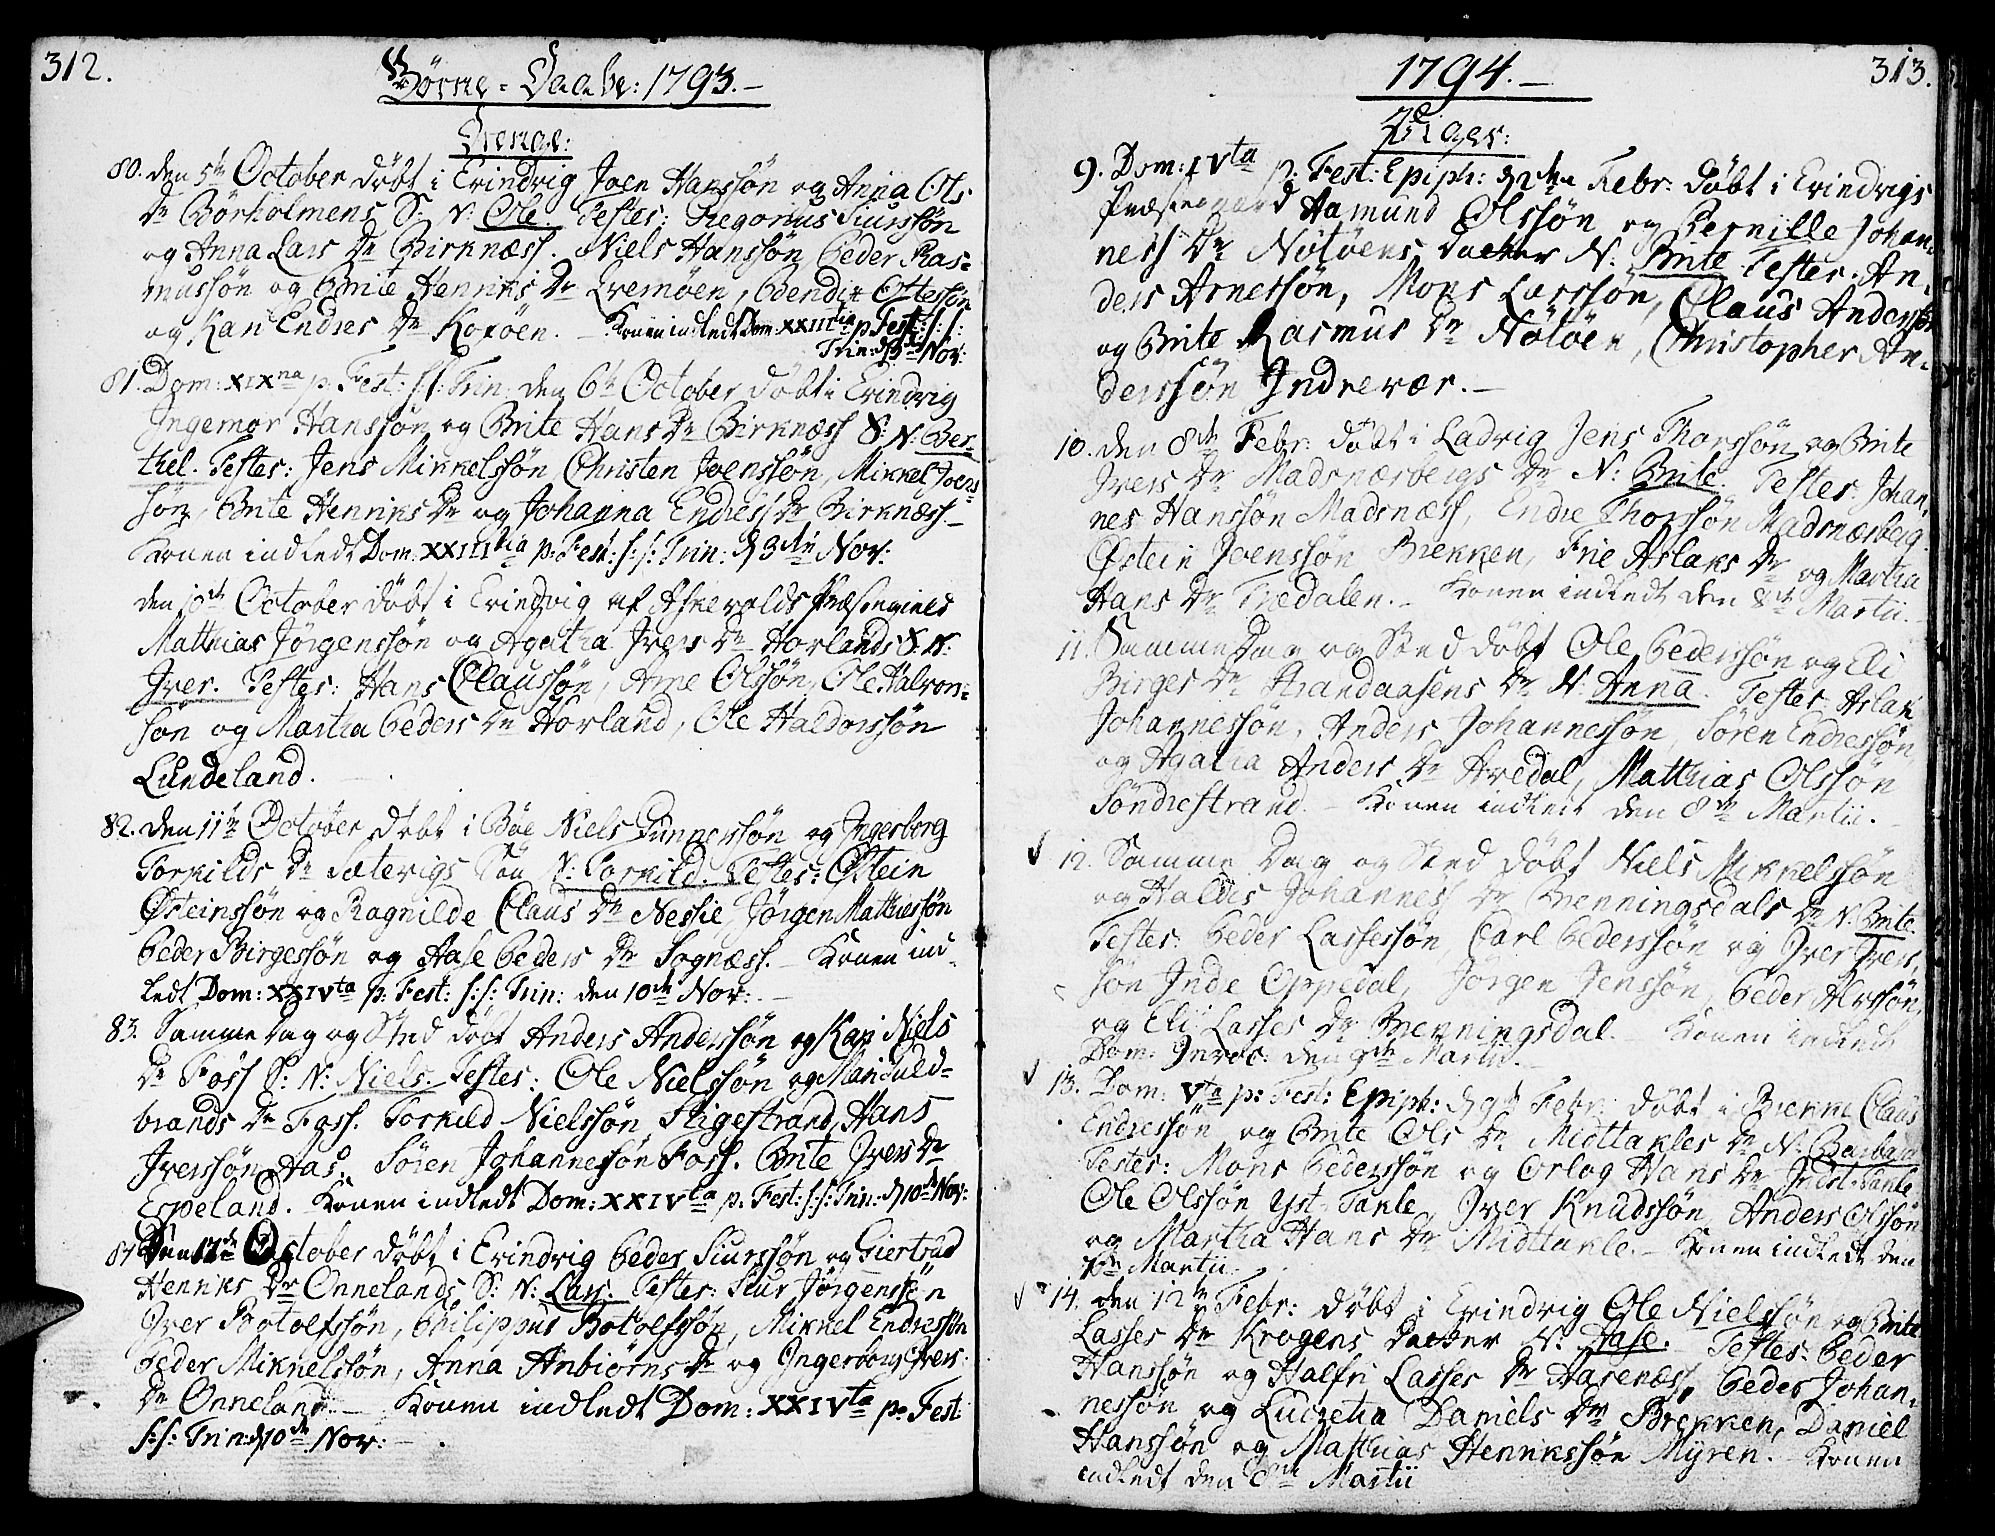 312.
Børne-Daabe: 1793.
Drenge:
80. den 5te October døbt i Evindvig Joen Hanssøn og Anna Ols
Dr Børholmens S: N: Ole Testes: Gregorius Siurssøn
og Anna Lars Dr Birknæss. Niels Hanssøn, Peder Ras=
mussøn og Brite Henriks Dr Eremøen, Bendix Ottessøn
og Kari Endres Dr Koxøen. - Konen indledt Dom: XXIIItia p: Fest: s: s:
Trin: d 3die Nov:
81. Dom: XIXna p: Fest: s: s: Trin: den 6te October døbt i Evindvig
Ingemor Hanssøn og Brite Hans Dr Birknæss S: N: Ber=
thel. Testes: Jens Mikkelssøn Christen Joenssøn, Mikkel Joens
søn, Brite Henriks Dr og Johanna Endress Dr Birknæss -
Konen indledt Dom: XXIIItia p: Fest: s: s: Trin: d 3die Nov:
den 10de October døbt i Evindvig af Askevolds Præstegield
Matthias Jørgenssøn og Agatha Ivers Dr Horlands S: N:
Iver. Testes: Hans Claussøn, Arne Olssøn, Ole Halvor=
søn og Martha Peders Dr Horland, Ole Haldorssøn
Lundeland.
82. den 11te October døbt i Bøe Niels Gunnerssøn og Ingerborg
Torkilds Dr Sætervigs Søn N: Torkild. Testes: Østein
Østeinssøn og Ragnilde Claus Dr Nessie Jørgen Mathiessøn
Peder Birgessøn og Aase Peders Dr Sognæss. - Konen ind=
ledt Dom: XXIVta p: Fest: s: s: Trin: den 10de Nov: -
83. Samme Dag og Sted døbt Anders Anderssøn og Kari Niels
Dr Foss S: N: Niels. Testes: Ole Nielssøn og Mari Guld=
brands Dr Foss. Torkild Nielssøn Stigestrand, Hans
Iverssøn Aas. Søren Johannessøn Foss. Brite Ivers Dr
Eppeland. Konen indledt Dom: XXIVta p: Fest: s: s: Trin: d 10de Nov:
84 Den 12te October døbt i Evindvig Peder Siurssøn og Giertrud
Henriks Dr Onnelands S: N: Lars. Testes: Siur Jørgenssøn
Iver Botolfssøn, Philippus Botolfssøn, Mikkel Endressøn
Peder Mikkelssøn, Anna Anbiørns Dr og Ingerborg Ivers
Dr Onneland. - Konen indledt Dom: XXIVta p: Fest:
s: s: Trin: d 10de Nov: -
1794.
313.
Piger:
9. Dom: IVta p: Fest: Epiph: d 2den Febr: døbt i Evindvigs
Præstegaard Aamund Olssøn og Pernille Johan=
ness Dr Nøtøens Dotter N: Brite Testes: An=
ders Arnessøn, Mons Larssøn, Claus Anderssøn
og Brite Rasmus Dr Nøtøen, Christopher An=
derssøn Indrevær. -
10. den 8de Febr: døbt i Ladvig Jens Thorssøn og Brite
Ivers Dr Madsnærbergs Dr N: Brite. Testes: Johan=
nes Hanssøn Madsnæss, Endre Thorssøn Madsnærberg.
Østein Joenssøn Brekken, Frie Aslaks Dr og Martha
Hans Dr Tredalen. - Konen indledt den 8de Martii.
11. Samme Dag og Sted døbt Ole Pederssøn og Eli
Birges Dr Strandaasens Dr N: Anna. Testes: Aslak
Johannessøn, Anders Johannessøn, Søren Endressøn
og Agatha Anders Dr Avedal, Matthias Olssøn
Søndrestrand. - Konen indledt den 8de Martii. -
12. Samme Dag og Sted døbt Niels Mikkelssøn
og Haldis Johanness Dr Brenningsdals Dr N: Brite.
Testes: Peder Lassessøn, Carl Pederssøn og Iver Ivers=
søn Inde Oppedal, Jørgen Jenssøn, Peder Alvssøn,
og Eli Lasses Dr Brenningsdal. - Konen indledt
Dom: Invoc: den 9de Martii. -
13. Dom: Vta p: Fest: Epiph: d 9de Febr: døbt i Brekke Claus
Endressøn og Brite Ols Dr Midttakles Dr N: Barbara
Testes: Mons Pederssøn og Orlog Hans Dr Indst-Takle
Ole Olssøn Yst-Takle, Iver Knudssøn, Anders Olssøn
og Martha Hans Dr Midttakle. - Konen indledt den
Martii.
14. den 12te Febr: døbt i Evindvig Ole Nielssøn og Brite
Lasses Dr Krogens Dotter N: Aase. Testes: Peder
Hanssøn og Halfri Lasses Dr Aarenæs, Peder Johan=
nessøn og Lucretia Daniels Dr Brekken, Daniel
Hanssøn og Matthias Henrikssøn Myren. - Konen
indledt den 8de Martii